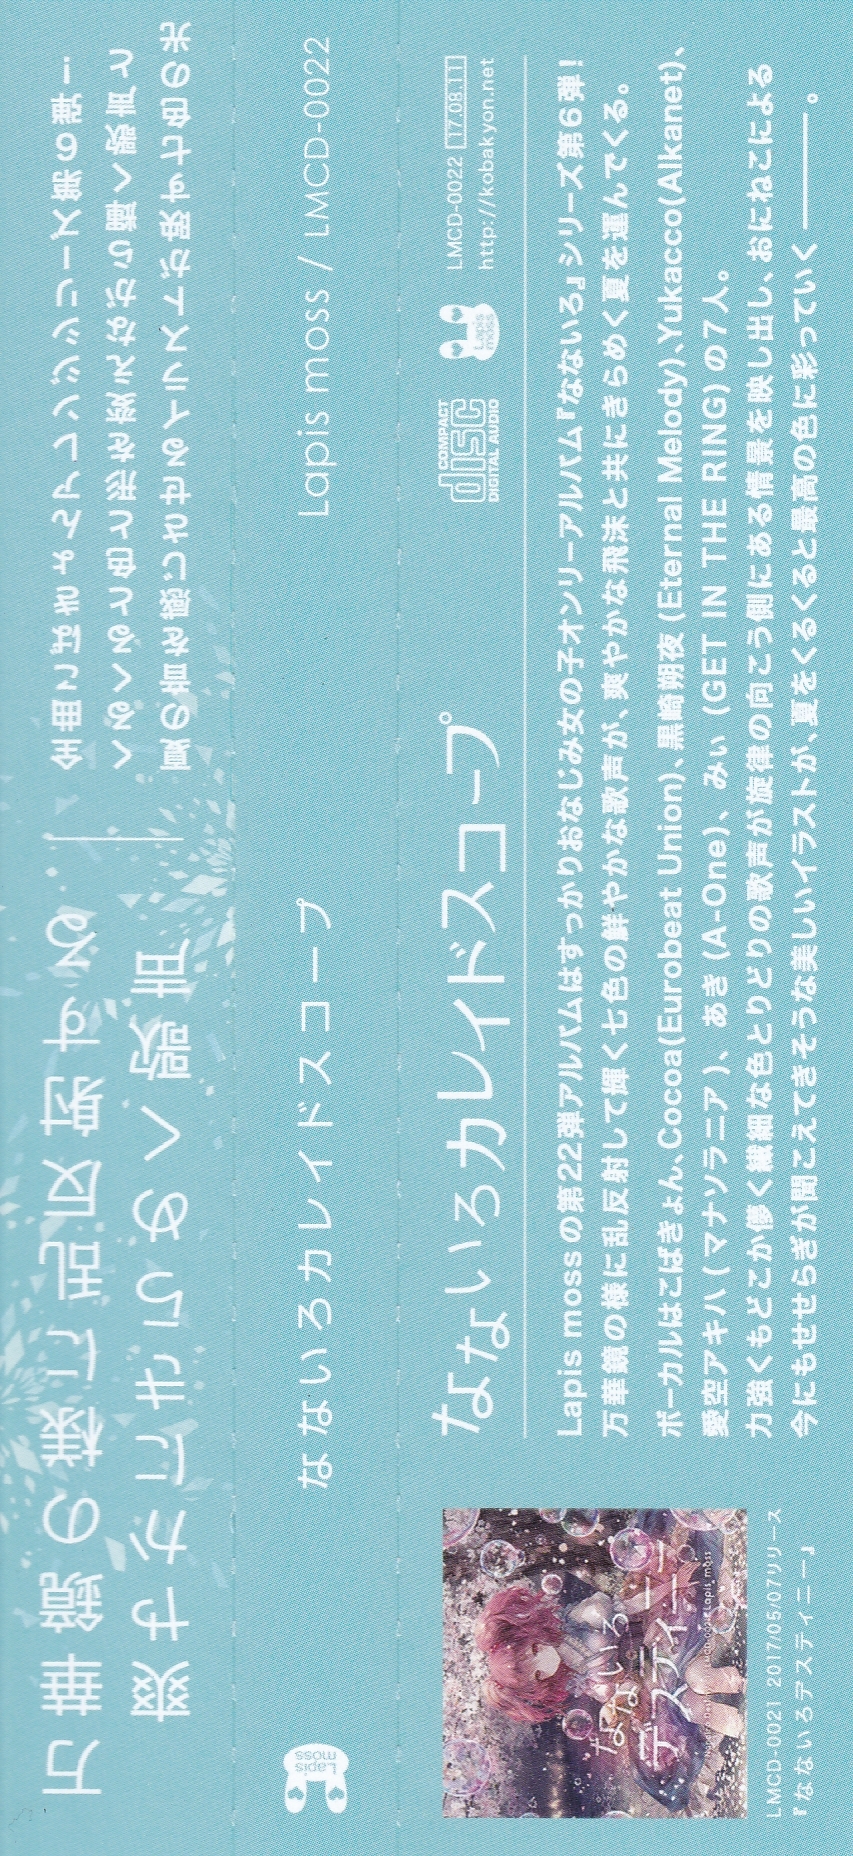 万華鏡の様に乱反射する
爽やかにきらめく歌声
全曲こばきょんアレンジシリーズ第6弾!
くるくると色と形を変えながら響く歌声と
夏の音を感じさせるイラストが映す七色の光
Lapis moss
なないろカレイドスコープ
Lapis moss / LMCD-0022
なないろカレイドスコープ
COMPACT disc DIGITAL AUDIO
Lapis moss
LMCD-0022 17.08.11
http://kobakyon.net
Lapis mossの第22弾アルバムはすっかりおなじみ女の子オンリーアルバム『なないろ』シリーズ第6弾!
万華鏡の様に乱反射して輝く七色の鮮やかな歌声が、爽やかな飛沫と共にきらめく夏を運んでくる。
ボーカルはこばきょん、Cocoa(Eurobeat Union)、黒崎朔夜(Eternal Melody)、Yukacco(Alkanet)、
愛空アキハ(マナソラニア)、あき(A-One)、みぃ(GET IN THE RING)の7人。
力強くもどこか儚く繊細な色とりどりの歌声が旋律の向こう側にある情景を映し出し、おにねこによる
今にもせせらぎが聞こえてきそうな美しいイラストが、夏をくるくると最高の色に彩っていく———。
なないろ
デスティニー
Lapis moss
LMCD-0021 2017/05/07リリース
『なないろデスティニー』